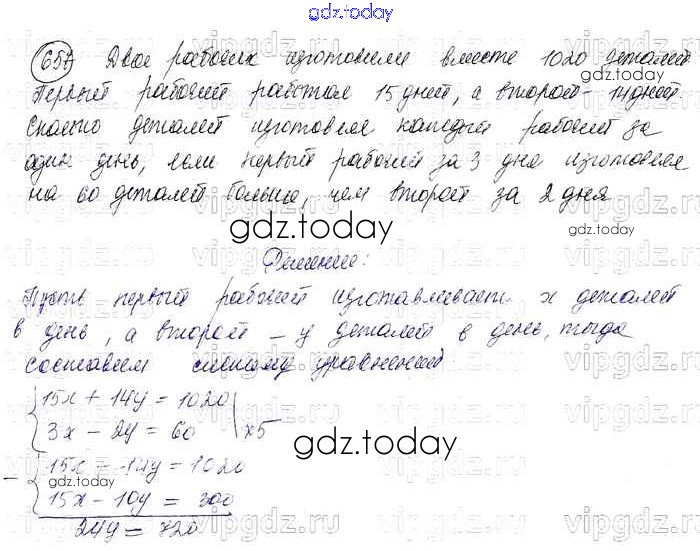 gdz.today
657 Двое рабочих изготовили вместе 1020 деталей
gdz.today
Первый рабочий работал 15 дней, а второй - 14 дней.
Сколько деталей изготовил каждый рабочий за
один день, если первый рабочий за 3 дня изготовил
на 60 деталей больше, чем второй за 2 дня
gdz.today
gdz.today
Решение:
Пусть первый рабочий изготавливает x деталей
в день, а второй - y деталей в день, тогда
составим систему уравнений:
15x + 14y = 1020
3x - 2y = 60 | x5
gdz.today
15x - 14y = 1020
15x - 10y = 300
24y = 720
gdz.today
vipgdz.ru